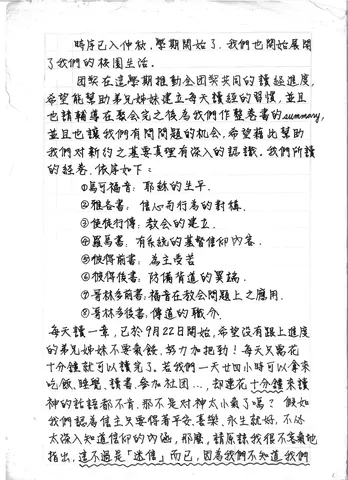 時序已入仲秋，學期開始了，我們也開始展開
了我們的校園生活。
團契在這學期推動全團契共同的讀經進度，
希望能幫助弟兄姊妹建立每天讀經的習慣，並且
也請輔導在聚會完之後為我們作整卷書的summary，
並且也讓我們有問問題的机会。希望藉此幫助
我們對新約之基要真理有深入的認識。我們所讀
的經卷，依序如下：
①馬可福音：耶穌的生平．
②雅各書：信心而行為的對稱．
③使徒行傳：教会的建立．
④羅馬書：有系統的基督信仰內容．
⑤彼得前書：為主受苦
⑥彼得後書：防備背道的異端．
⑦哥林多前書：福音在教会問題上之應用．
⑧哥林多後書：傳道的職分．
每天讀一章，已於9月22日開始，希望沒有跟上進度
的弟兄姊妹不要氣餒，努力加把勁！每天只需花
十分鐘就可以讀完了，若我們一天廿四小時可以拿來
吃飯、睡覺、讀書、參加社団…，却連花十分鐘來讀
神的話語都不肯，那不是对神太小氣了嗎？假如
我們認為信主只要得着平安、喜樂、永生就好，不必
太深入知道信仰的內涵，那麼，請原諒我很不客氣地
指出，這不過是「迷信」而已，因為我們不知道我們